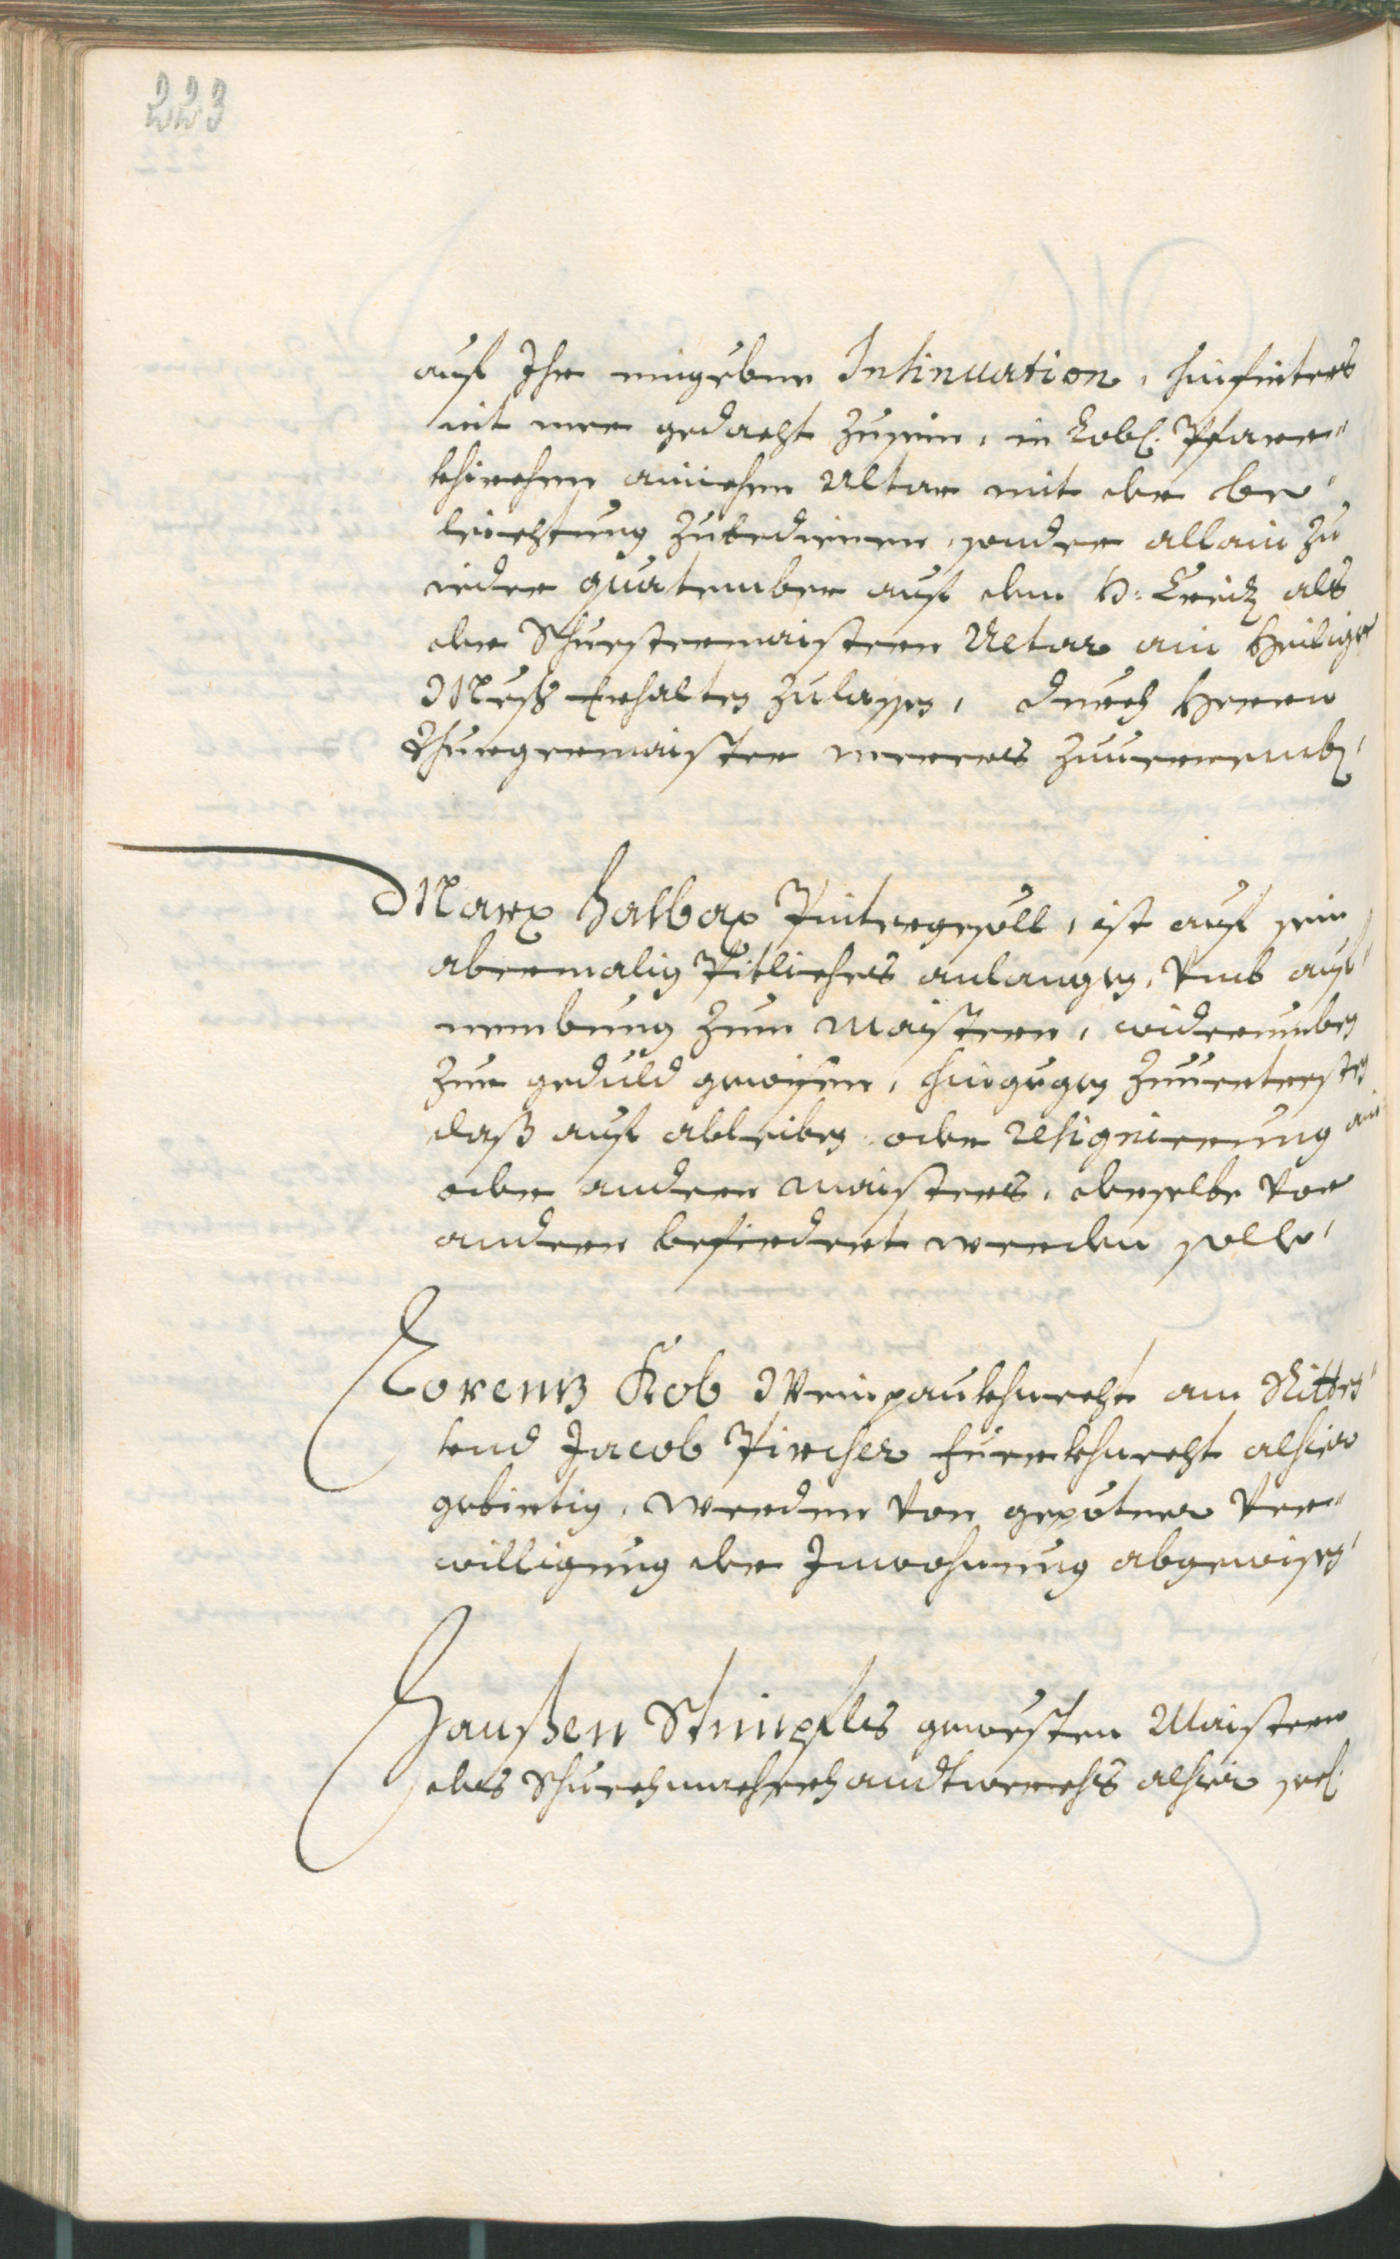 223
auf Ihr eingebne Insinuation, hinfüters
nit mer gedacht zusein, in Lobl. Pfarr„
khirchen ainichen Altar mit der be„
leichtung zubedienen, sonder allain zu
ieder quatember auf dem H: Creiz als
der Schuestermaistern Altar ain Heilige
Mess Erhalten zulassen, durch Herrn
Burgermaister merers zuuernemb[en]
Marx Halbax Pintergesöll, ist auf sein
abermalig Pitliches anlangen, vmb auf„
nembung zum Maistern, widerumben
zur geduld gewisen, hingegen zuuertresten
dass auf ableiben oder resignierung ain
oder andern maisters, derselbe vor
andern befirdert werden solle,
Lorenz Kob Weinpaukhnecht am Ritten„
vnd Jacob Pircher Fuerkhnecht alhier
gebirtig, werden von gepetner Ver„
willigung der Inwohnung abgewisen,
Hannßen Stimpfls gewesten Maistern
des Schuechmacherhandtwerchs alhier sel.